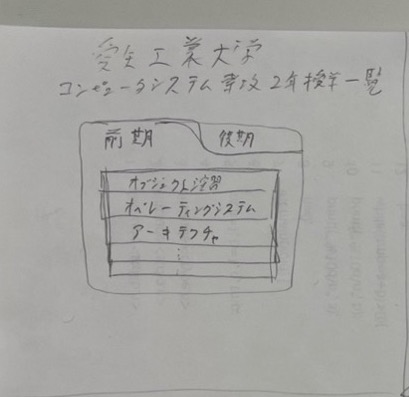 愛知工業大学
コンピュータシステム専攻 2年授業一覧
前期 後期
オブジェクト演習
オペレーティングシステム
アーキテクチャ
⋮